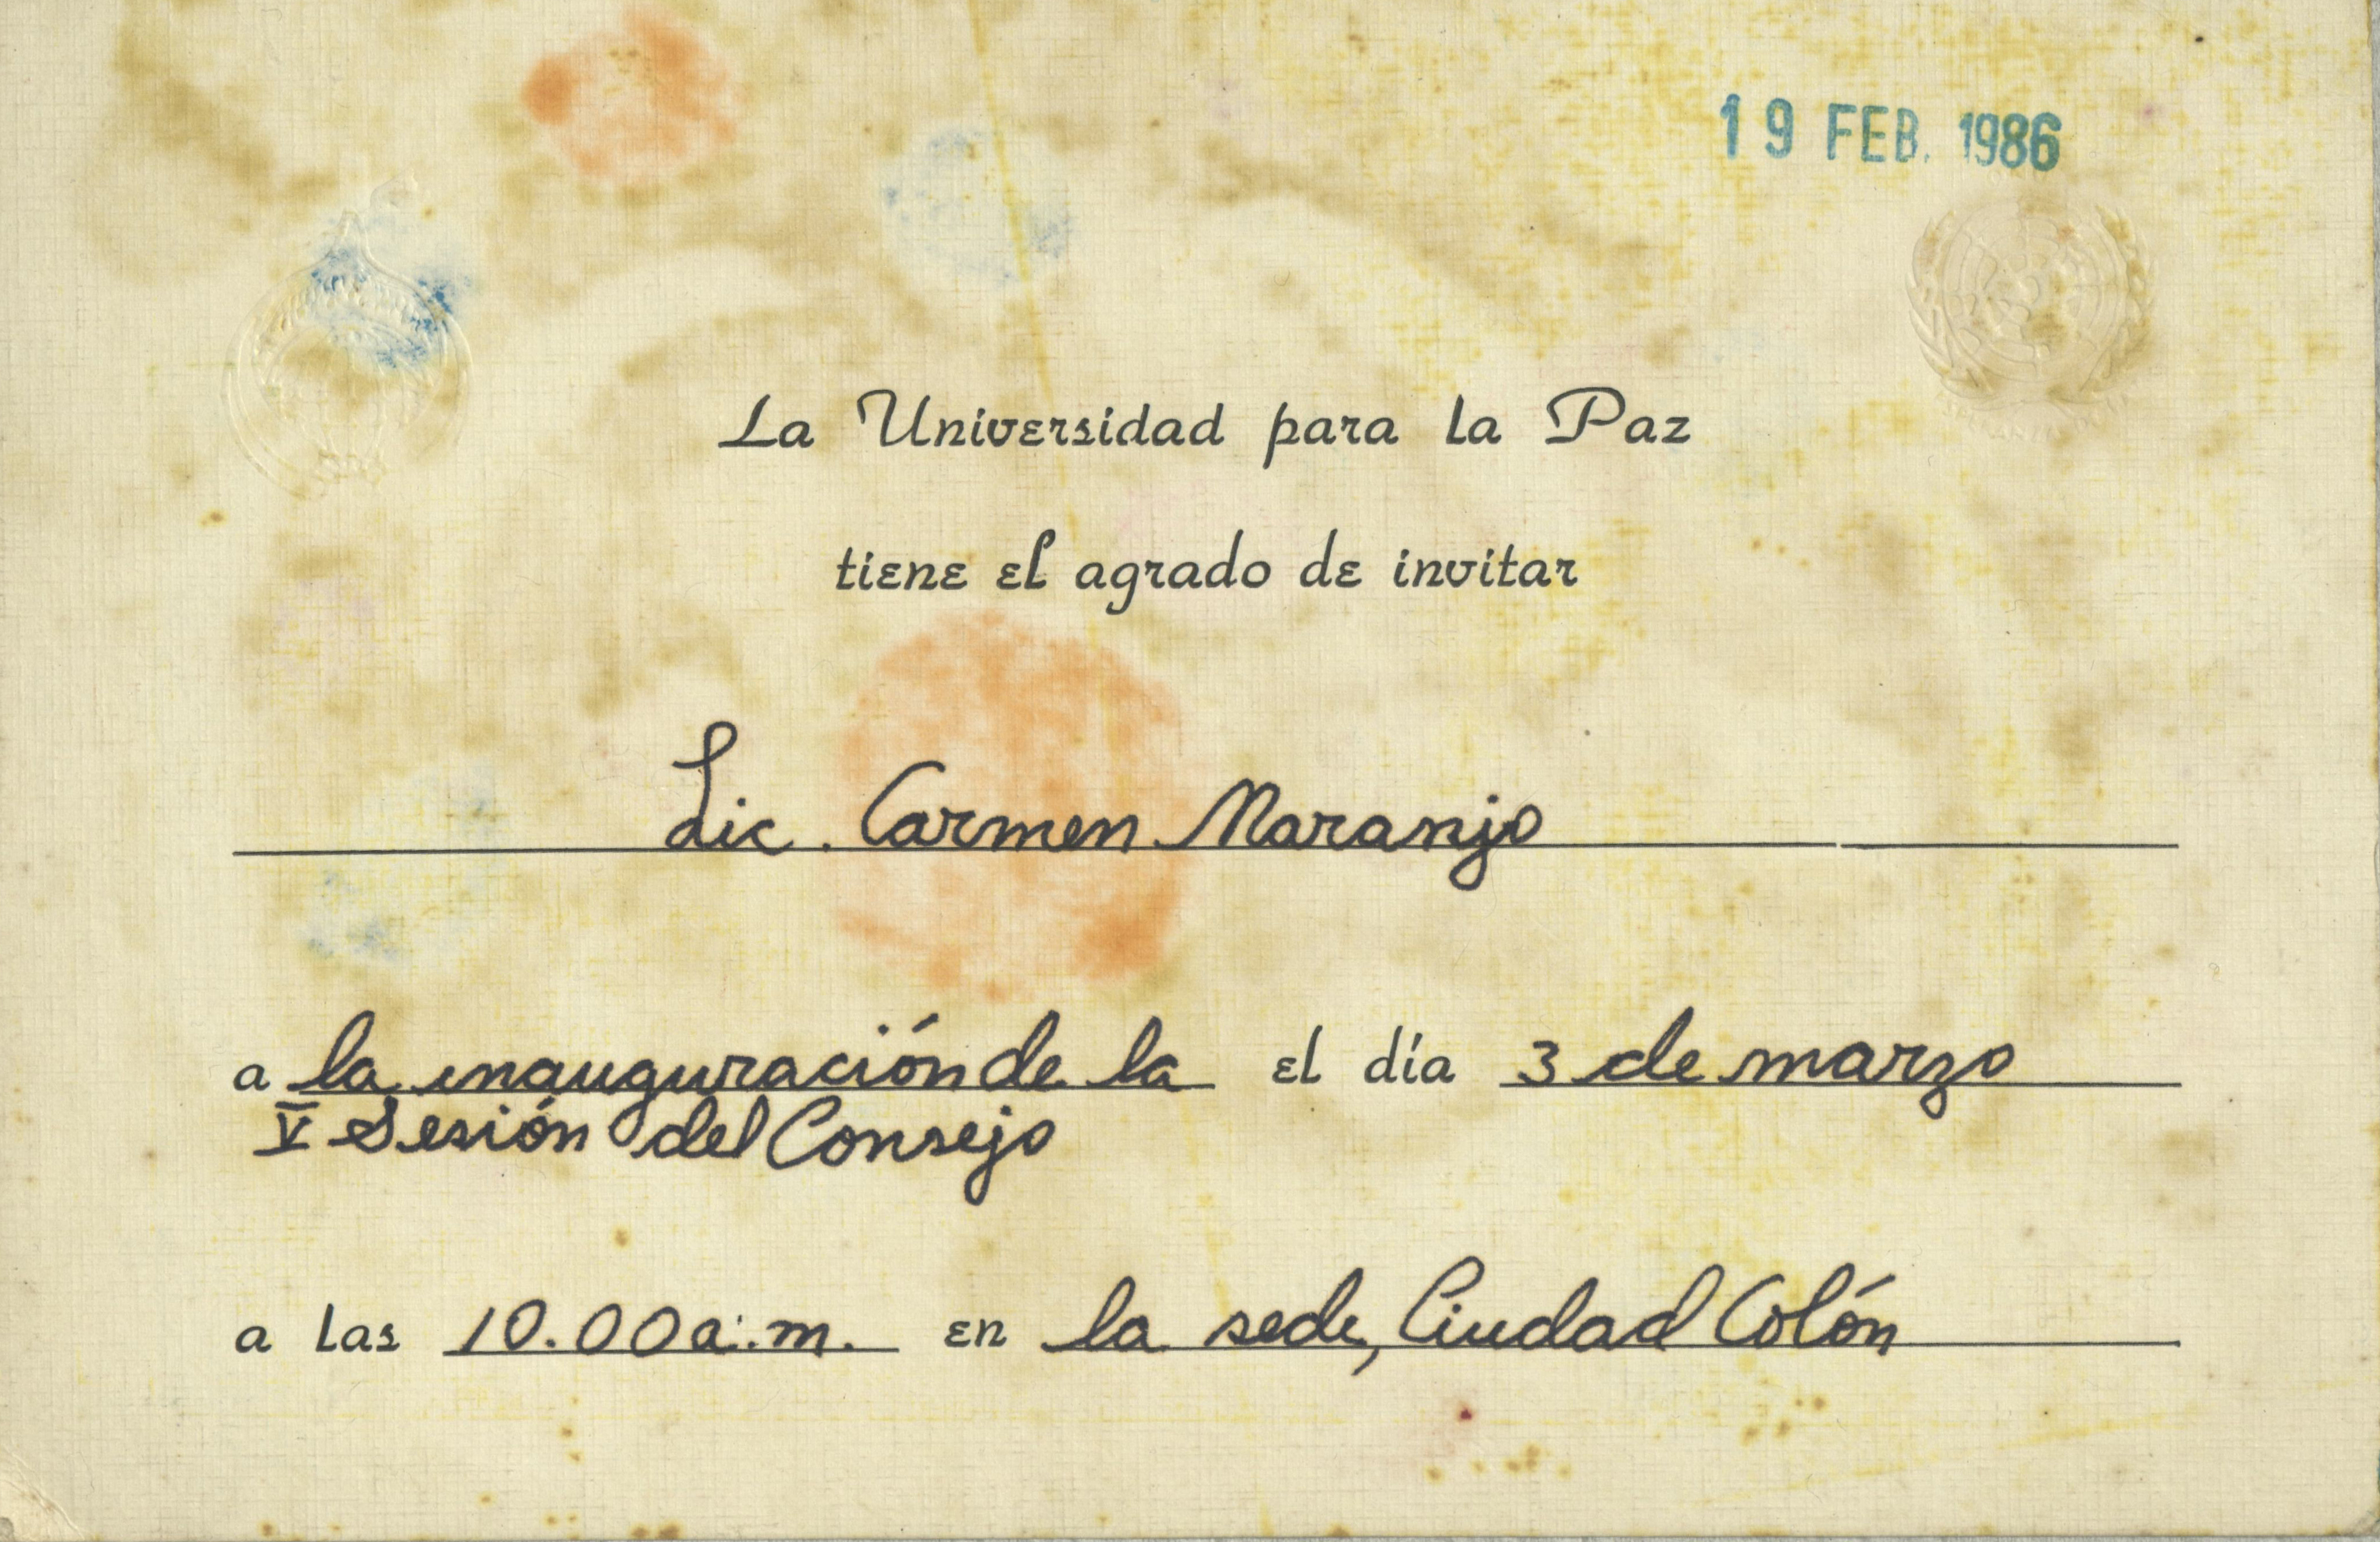 19 FEB. 1986
La Universidad para la Paz
tiene el agrado de invitar
Lic. Carmen Naranjo
a la inauguración de la el día 3 de marzo
V Sesión del Consejo
a las 10.00 a.m. en la sede, Ciudad Colón